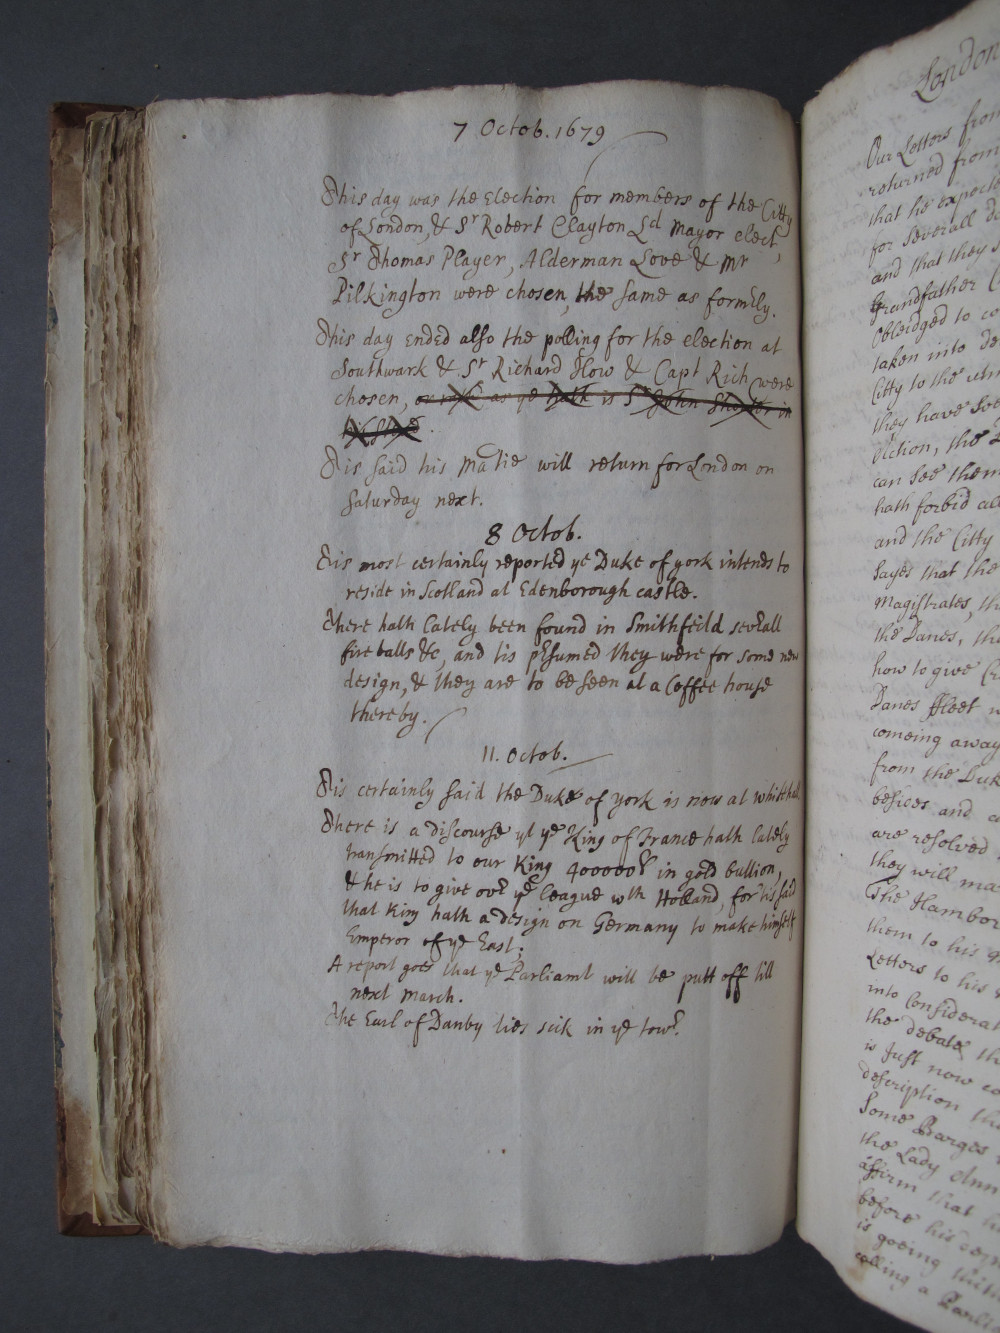 7 Octob. 1679
This day was the Election for members of the Citty
of London, & Sr Robert Clayton Ld Mayor elect,
Sr Thomas Player, Alderman Love & Mr
Pilkington were chosen, the same as formerly.
This day ended also the polling for the election at
Southwark & Sr Richard How & Capt Rich were
chosen, as ye hath is Sr John Shorter in
his stead.
Tis said his Matie will return for London on
Saturday next.
8 Octob.
Tis most certainly reported ye Duke of york intends to
reside in Scotland at Edenborough castle.
There hath lately been found in Smithfeild severall
fire balls &c, and tis presumed they were for some new
design, & they are to be seen at a Coffee house
thereby.
11. Octob.
Tis certainly said the Duke of york is now at whitehal.
There is a discourse yt ye King of France hath lately
transmitted to our King 400000l in gold bullion,
& he is to give over ye league wth Holland, for tis said
that King hath a design on Germany to make himself
Emperor of ye East;
A report goes that ye Parliamt will be putt off till
next march.
The Earl of Danby lies sick in ye tower.
London
Our Letters from
returned from
that he expect
for severall d
and that they s
Grandfather
Obleidged to co
taken into de
Citty to the
they have
election, the
can see them
hath forbid all
and the Citty
sayes that the
Magistrates, th
the Danes, the
how to give
Danes ffleet w
comeing away
from the Duk
besides and a
are resolved
they will ma
The Hambor
them to his
Letters to his
into Considerat
the debate, th
is Just now co
description tha
Some Barges
the Lady Ann
affirm that h
before his com
is goeing
calling a Parli